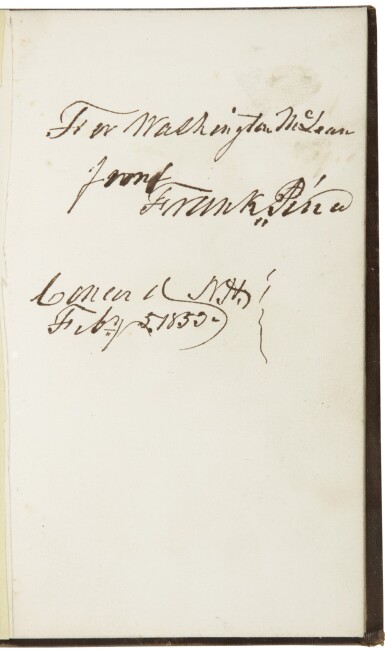 For Washington McLean
from
Frank Pierce
Concord N.H.
Feby 5, 1853